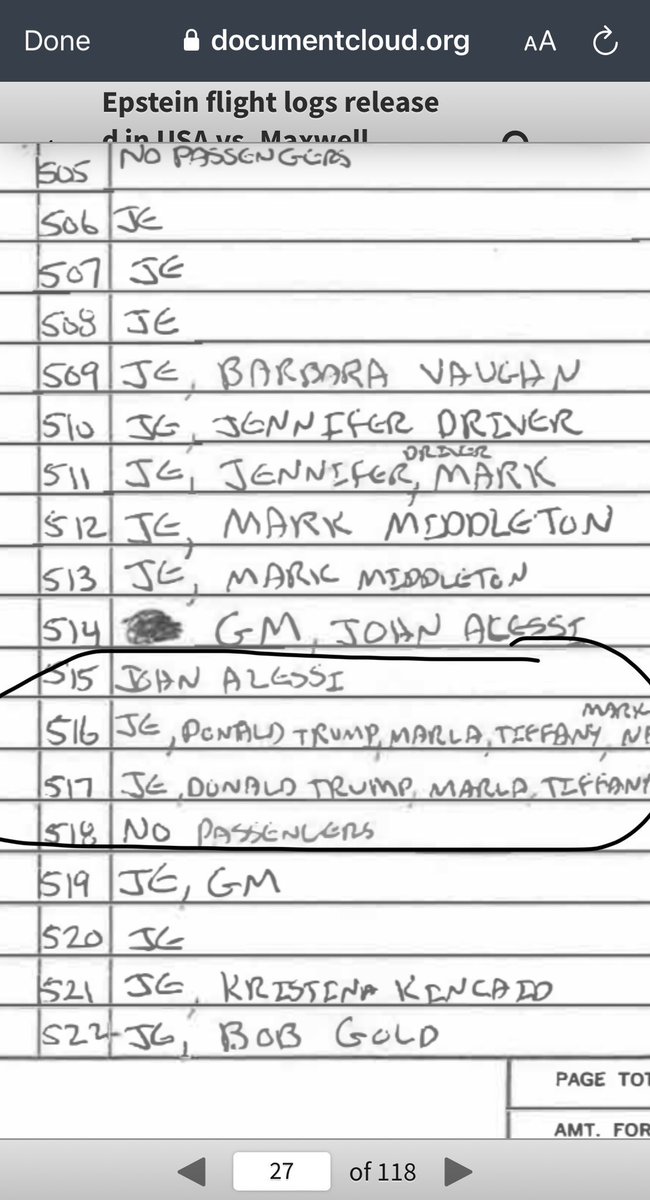 Done documentcloud.org AA
Epstein flight logs release
d in USA vs. Maxwell
505 NO PASSENGERS
506 JE
507 JE
508 JE
509 JE, BARBARA VAUGHN
510 JE, JENNIFER DRIVER
DRIVER
511 JE, JENNIFER, MARK
512 JE, MARK MIDDLETON
513 JE, MARK MIDDLETON
514 GM, JOHN ALESSI
515 JOHN ALESSI
MARK
516 JE, DONALD TRUMP, MARLA, TIFFANY, N
517 JE, DONALD TRUMP, MARLA, TIFFANY
518 NO PASSENGERS
519 JE, GM
520 JE
521 JE, KRISTINA KINCAID
522 JE, BOB GOLD
PAGE TOT
AMT. FOR
27 of 118